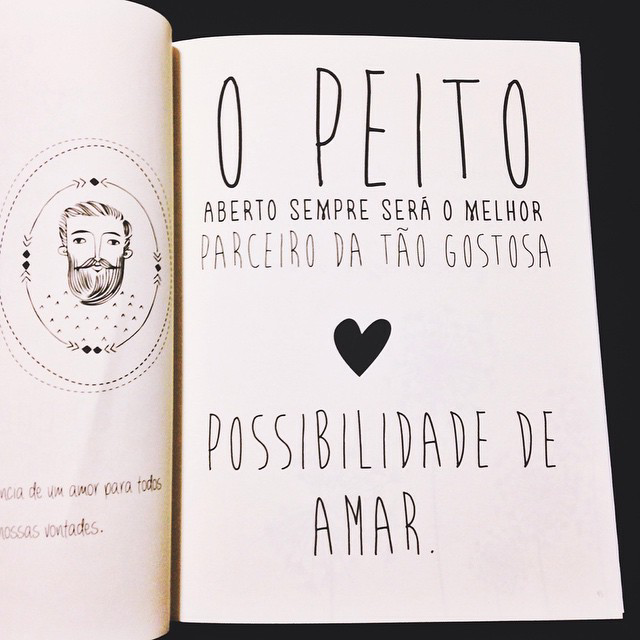 de um amor para todos
nossas vontades.
O PEITO
ABERTO SEMPRE SERÁ O MELHOR
PARCEIRO DA TÃO GOSTOSA
POSSIBILIDADE DE
AMAR.